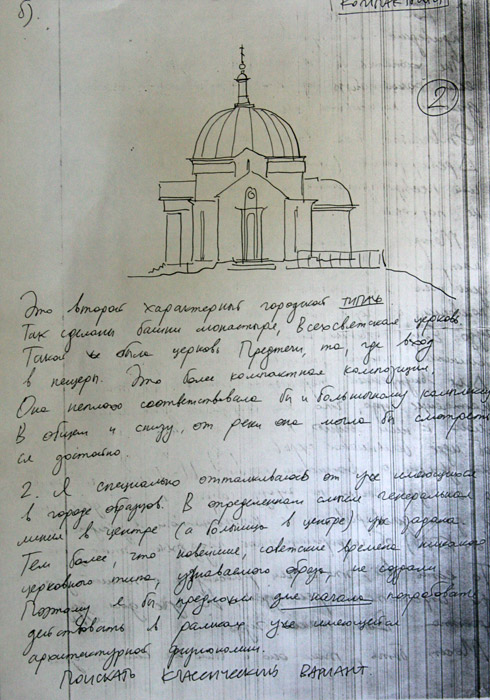 б)
КОМПАКТНЫЙ
2
Это второй характерный городской типаж
Так сделаны башни монастыря, Всехсвятская церковь
Такой же была церковь Предтечи, та, где вход
в пещеры. Это более компактная композиция.
Она неплохо соответствовала бы и больничному комплексу
В общем и снизу, от реки она могла бы смотреть
ся достойно.
2. Я специально отталкивалась от уже имеющихся
в городе образцов. В определенном смысле генеральная
линия в центре (а больница в центре) уже задана.
Тем более, что новейшие, советские времена никакого
церковного типа, узнаваемого образа, не создали.
Поэтому я бы предложил для начала попробовать
действовать в рамках уже имеющейся
архитектурной физиономии.
ПОИСКАТЬ КЛАССИЧЕСКИЙ ВАРИАНТ.